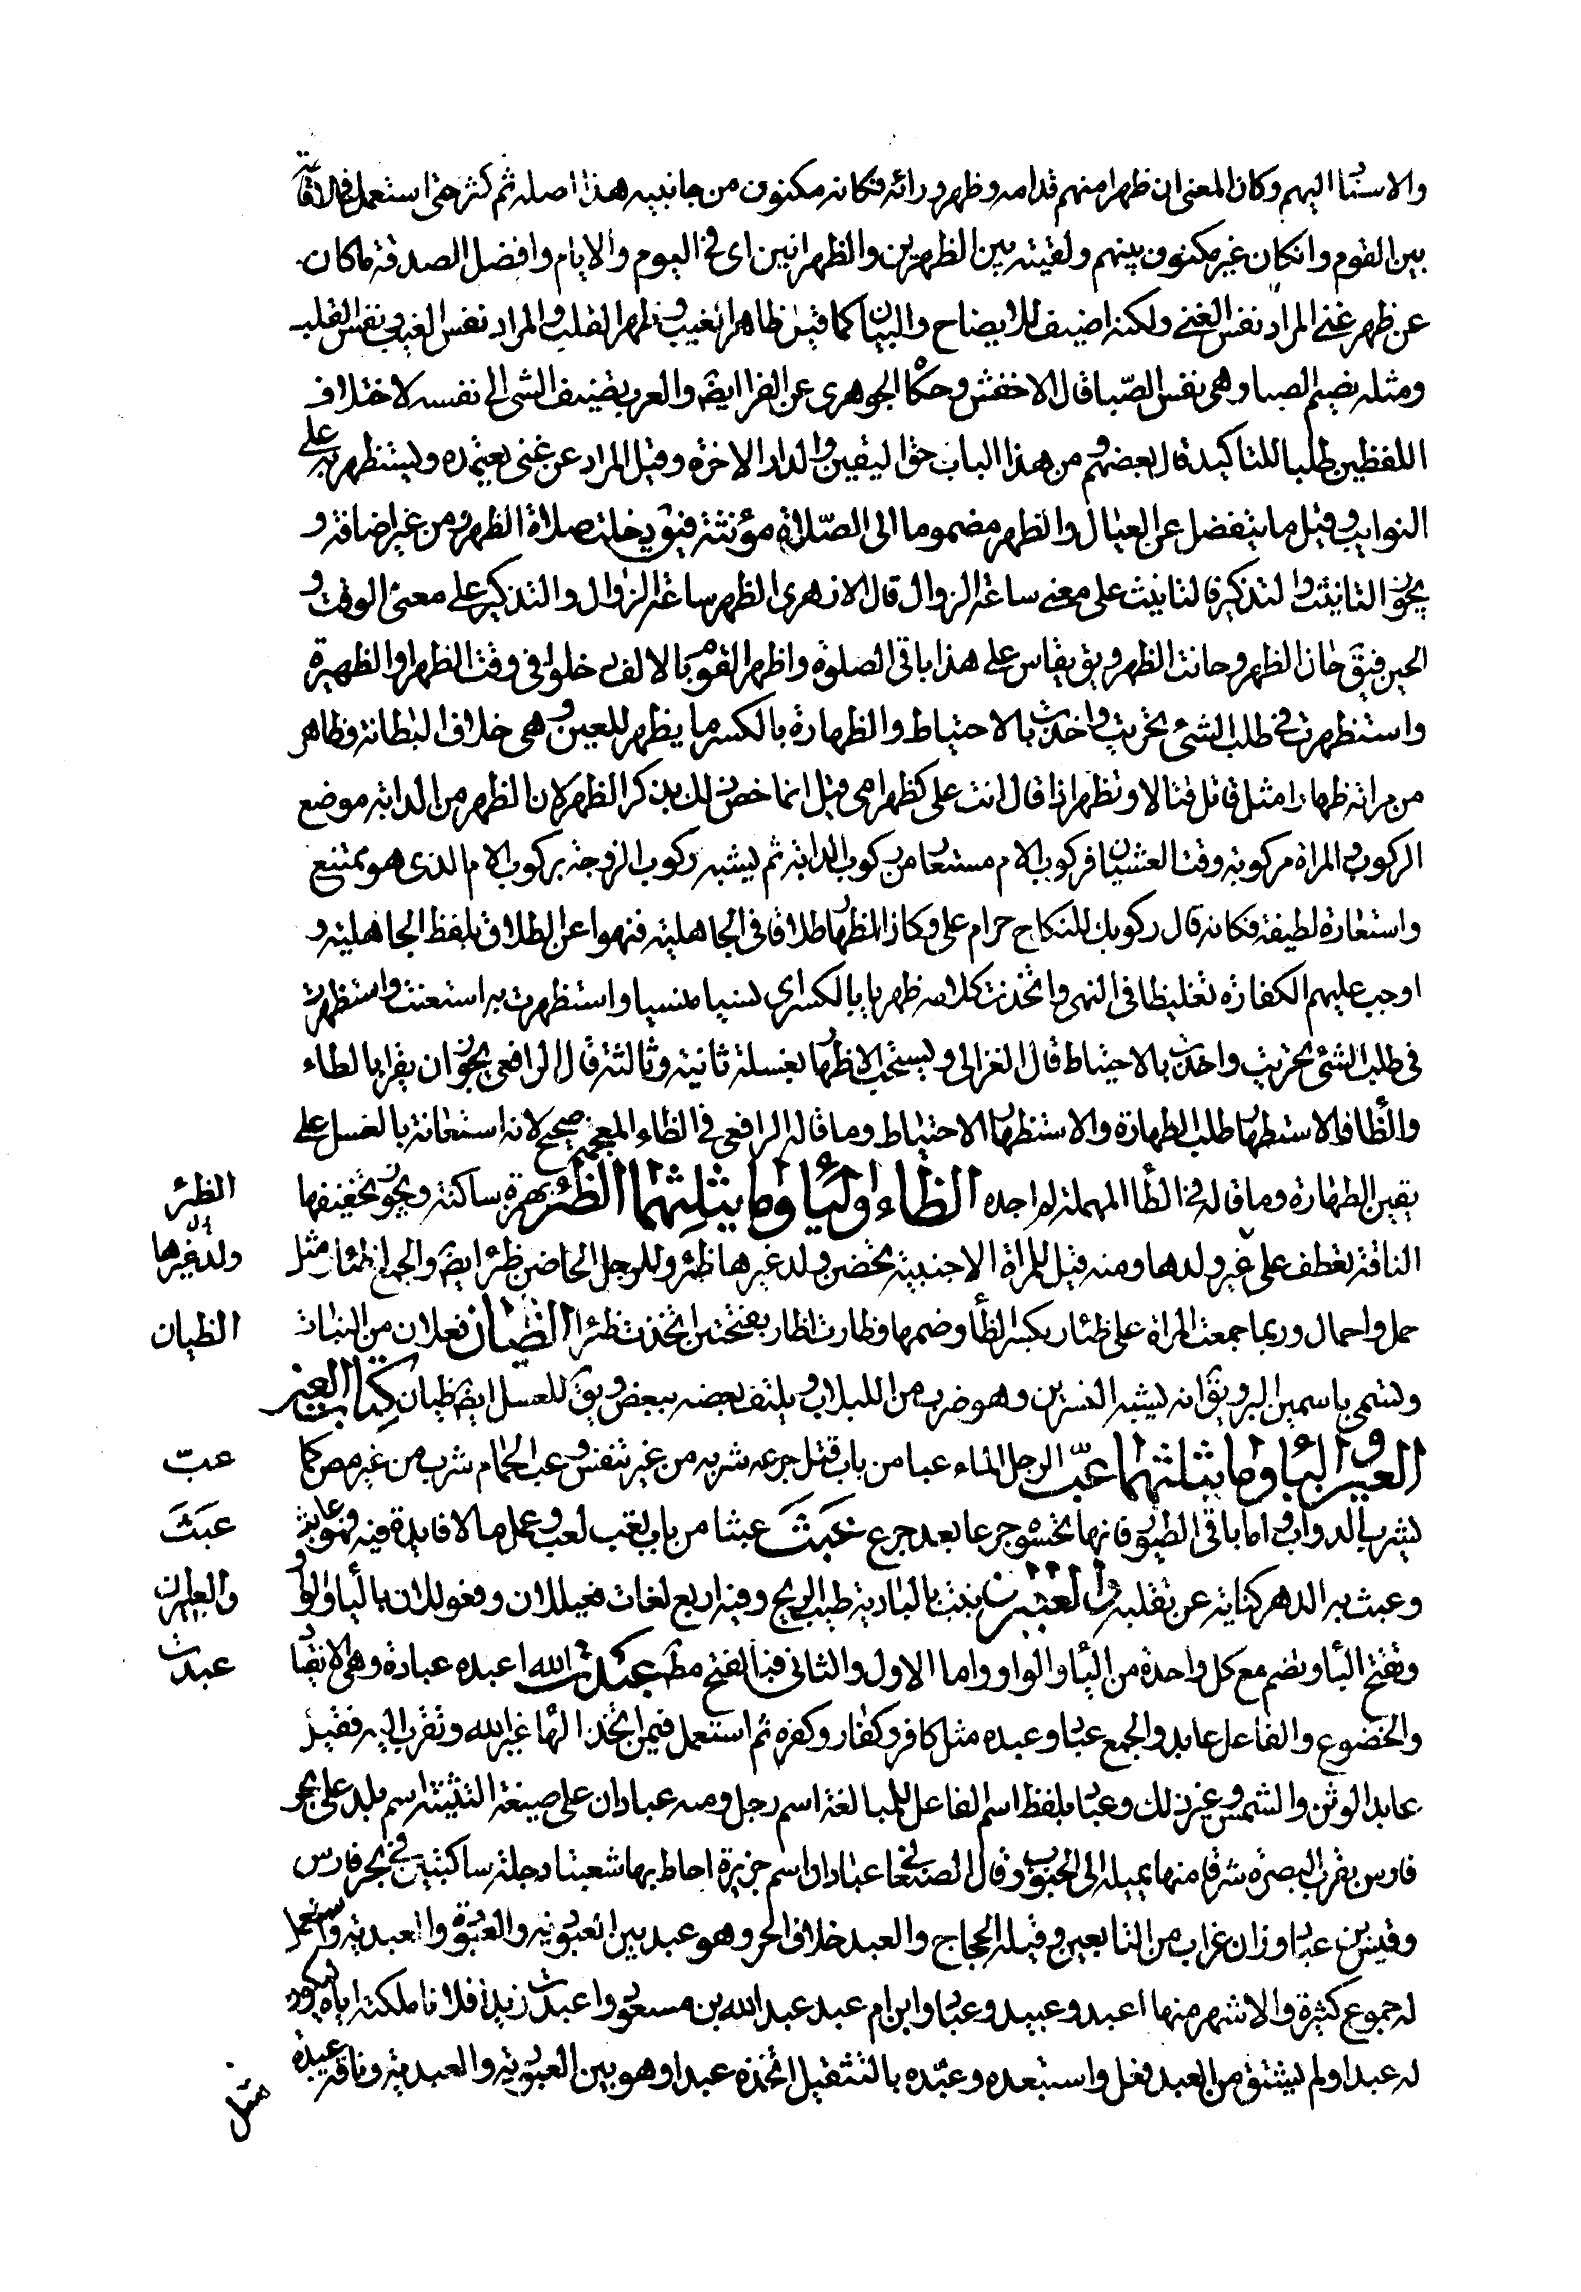 والاستناد اليهم وكان المعنى ان ظهرا منهم قدامه وظهر ورائه فكانه مكنوف من جانبيه هذا اصله ثم كثر حتى استعمل فى الاقامة
بين القوم وان كان غير مكنوف بينهم ولقيته بين الظهرين والظهرانين اى فى اليوم والايام وافضل الصدقة ما كان
عن ظهر غنى المراد نفس الغنى ولكنه اضيف للايضاح والبيان كما قيل ظاهر الغيب وظهر القلب والمراد نفس الغيب ونفس القلب
ومثله نسيم الصبا وهى نفس الصّبا قال الاخفش وحكاه الجوهرى عن الفرا ايضَ والعرب تضيف الشى الى نفسه لاختلاف
اللفظين طلبا للتاكيد قال بعضهم ومن هذا الباب حق اليقين والدار الاخرة وقيل المراد عن غنى يعتمده ويستظهر به على
النوايب وقيل ما يتفضل عن العيال والظهر مضموما الى الصّلاة مؤنثة فيقَ دخلت صلاة الظهر ومن غير اضافة و
يجوز التانيث والتذكير فالتانيث على معنى ساعة الزوال قال الازهرى الظهر ساعة الزوال والتذكير على معنى الوقت و
الحين فيقَ حان الظهر وحانت الظهر ويقَ يقاس على هذا باقى الصلوة واظهر القوم بالالف دخلوا فى وقت الظهر او الظهيرة
واستظهرت فى طلب الشئ تحريت واخذت بالاحتياط والظهارة بالكسر ما يظهر للعين وهى خلاف البطانة وظاهر
من مراته ظهارا مثل قاتل قتالا وتظهر اذا قال انت على كظهر امى قيل انما خص ذلك بذكر الظهر لان الظهر من الدابة موضع
الركوب والمراة مركوبة وقت الغشيان فركوب الام مستعار من ركوب الدابة ثم يشبه ركوب الزوجة بركوب الام الذى هو ممتنع
واستعارة لطيفة فكانه قال ركوبك للنكاح حرام على وكان الظهار طلاقا فى الجاهلية فنهوا عن الطلاق بلفظ الجاهلية و
اوجب عليهم الكفارة تغليظا فى النهى واتخذت كلامه ظهريا بالكسر اى نسيا منسيا واستظهرت به استعنت واستظهرت
فى طلب الشئ تحريت واخذت بالاحتياط قال الغزالى ويستحب الاظهار بغسلة ثانية وثالثة قال الرافعى يجوز ان يقرا بالطاء
والظا فالاستطهار طلب الطهارة والاستظهار الاحتياط وما قاله الرافعى فى الظاء المعجمة صحيح لانه استعانة بالغسل على
يقين الطهارة وما قاله فى الطا المهملة لم اجده الظاء والياء وما يثلثهما الظئر بهمزة ساكنة ويجوز تخفيفها
الظئر
الناقة تعطف على غير ولدها ومنه قيل للمراة الاجنبية تحضن ولد غيرها ظئر وللرجل الحاضن ظئر ايضَ والجمع اظئار مثل
ولد غيرها
حمل واحمال وربما جمعت المراة على ظئار بكسر الظا وضمها وظارت اظار بفتحتين اتخذت ظئرا الظيان فعلان من النبات
الظيان
ويسمى ياسمين البر ويقَ انه يشبه النسرين وهو ضرب من اللبلاب ويلتف بعضه ببعض ويقَ للعسل ايضَ ظيان كتاب العين
العين والباء وما يثلثهما عبّ الرجل الماء عبا من باب قتل جرعه شربه من غير تنفس وعب الحمام شرب من غير مص كما
عبّ
يشرب الدواب واما باقى الطيور فانها تحسوه جرعا بعد جرع عَبَثَ عبثا من باب تعب لعب وعمل ما لا فايدة فيه فهو عابث
عَبَثَ
وعبث به الدهر كناية عن تقلبه والعبيثران نبت بالبادية طيب الريح وفيه اربع لغات فعيللان وفعوللان باليا والواو
وتفتح اليا وتضم مع كل واحدة من اليا والواو واما الاول والثانى فبالفتح مطَ عبدت الله اعبده عبادة وهى الانقياد
عبدت
والخضوع والفاعل عابد والجمع عباد وعبدة مثل كافر وكفار وكفرة ثم استعمل فيمن اتخذ الها غير الله وتقرب اليه فقيل
عابد الوثن والشمس وغير ذلك وعباد بلفظ اسم الفاعل للمبالغة اسم رجل ومنه عبادان على صيغة التثنية اسم بلد على بحر
فارس بقرب البصرة شرقا منها بميلة الى الجنوب وقال الصغانى عبادان اسم جزيرة احاط بها شعبتا دجلة ساكبتين فى بحر فارس
وقيس بن عباد وزان غراب من التابعين وقتله الحجاج والعبد خلاف الحر وهو عبد بين العبودية والعبودة والعبدية واستعمل
له جموع كثيرة والاشهر منها اعبد وعبيد وعباد وابن ام عبد عبد الله بن مسعود واعبدت زيدا فلانا ملكته اياه ليكون
له عبدا ولم يشتق من العبد فعل واستعبده وعبّده بالتثقيل اتخذه عبدا وهو بين العبودية والعبدية وناقة عبدة
مثل